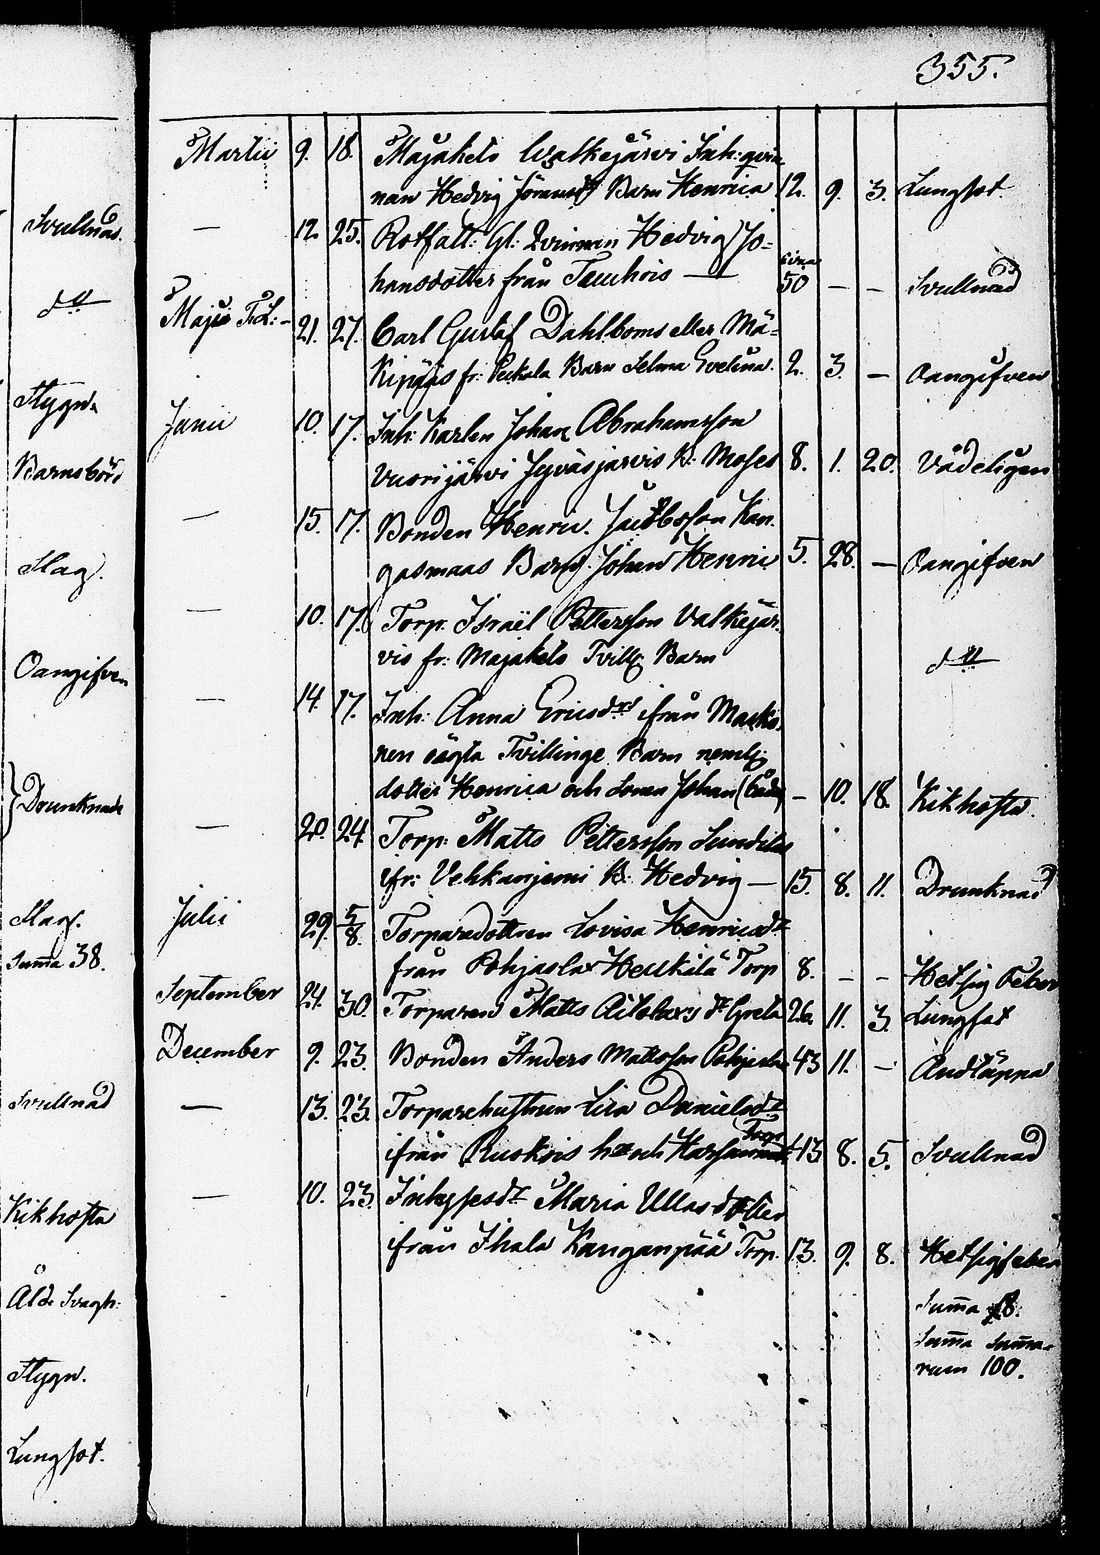 355.
Svullnad.
dº
Stygn.
Barnsbörd
Slag.
Oangifven
Drunknade
Slag.
Summa 38.
Svullnad
Kikhosta
Åld. Svagh.
Stygn.
Lungsot.
Martii 9. 18. Majakels Walkejärvi Inh: qvin
nan Hedvig Barn Henrica 12. 9. 3. Lungsot.
— 12. 25. Rotfatt: Gl: Qvinnan Hedvig Jo-
hansdotter från circa 50 — — Svullnad
Maji 21. 27. Carl Gustaf Dahlboms eller Mä-
kipääs fr: Peckala Barn Selma Evelina. 2. 3. — Oangifven
Junii 10. 17. Inh: Karlen Johan Abrahamsson
Vuorijärvi B: Moses 8. 1. 20. Vådeligen
— 15. 17. Bonden Henric Jacobsson Kan.
gasmaas Barn Johan Henric 5. 28. — Oangifven
— 10. 17. Torp: Israël Pettersson Valkejär-
vis fr: Majakels Tvill: Barn dº
— 14. 17. Inh: Anna Ericsdr ifrån
nen oägta Tvillinge Barn neml:
dotter Henrica och Sonen Johan (båda) — 10. 18. Kikhosta.
— 20. 24. Torp: Matts Pettersson
ifr: Vehkanjemi B: Hedvig — 15. 8. 11. Drunknad
Julii 29. 5/8. Torparedottren Lovisa Henricsdr
från Pohjaslax Heickilä Torp 8. — — Hetsig Feber
September 24. 30. Torparen Matts dr Greta 26. 11. 3. Lungsot
December 9. 23. Bonden Anders Mattsson 43 11. — Andtäppa
— 13. 23. Torparehustrun Lisa Danielsdr
ifrån Ruokois Torp 43 8. 5. Svullnad
— 10. 23. Inhysesdr Maria Ullasdotter
ifrån Ihala Kanganpää Torp. 13. 9. 8. Hetsigfeber
Summa 18.
Summa Summa-
rum 100.